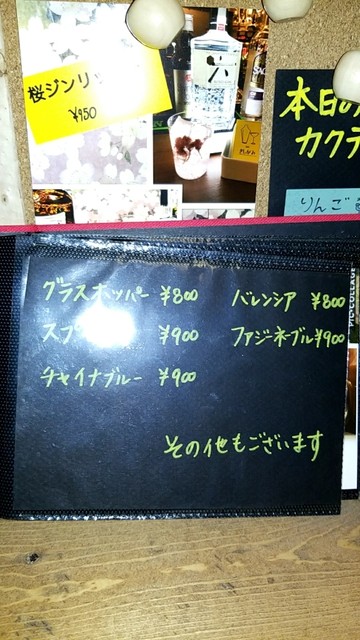 桜ジンリ
¥950
六
本日の
カクテ
りんご
グラスホッパー ¥800
バレンシア ¥800
¥900
ファジーネーブル ¥900
チャイナブルー ¥900
その他もございます